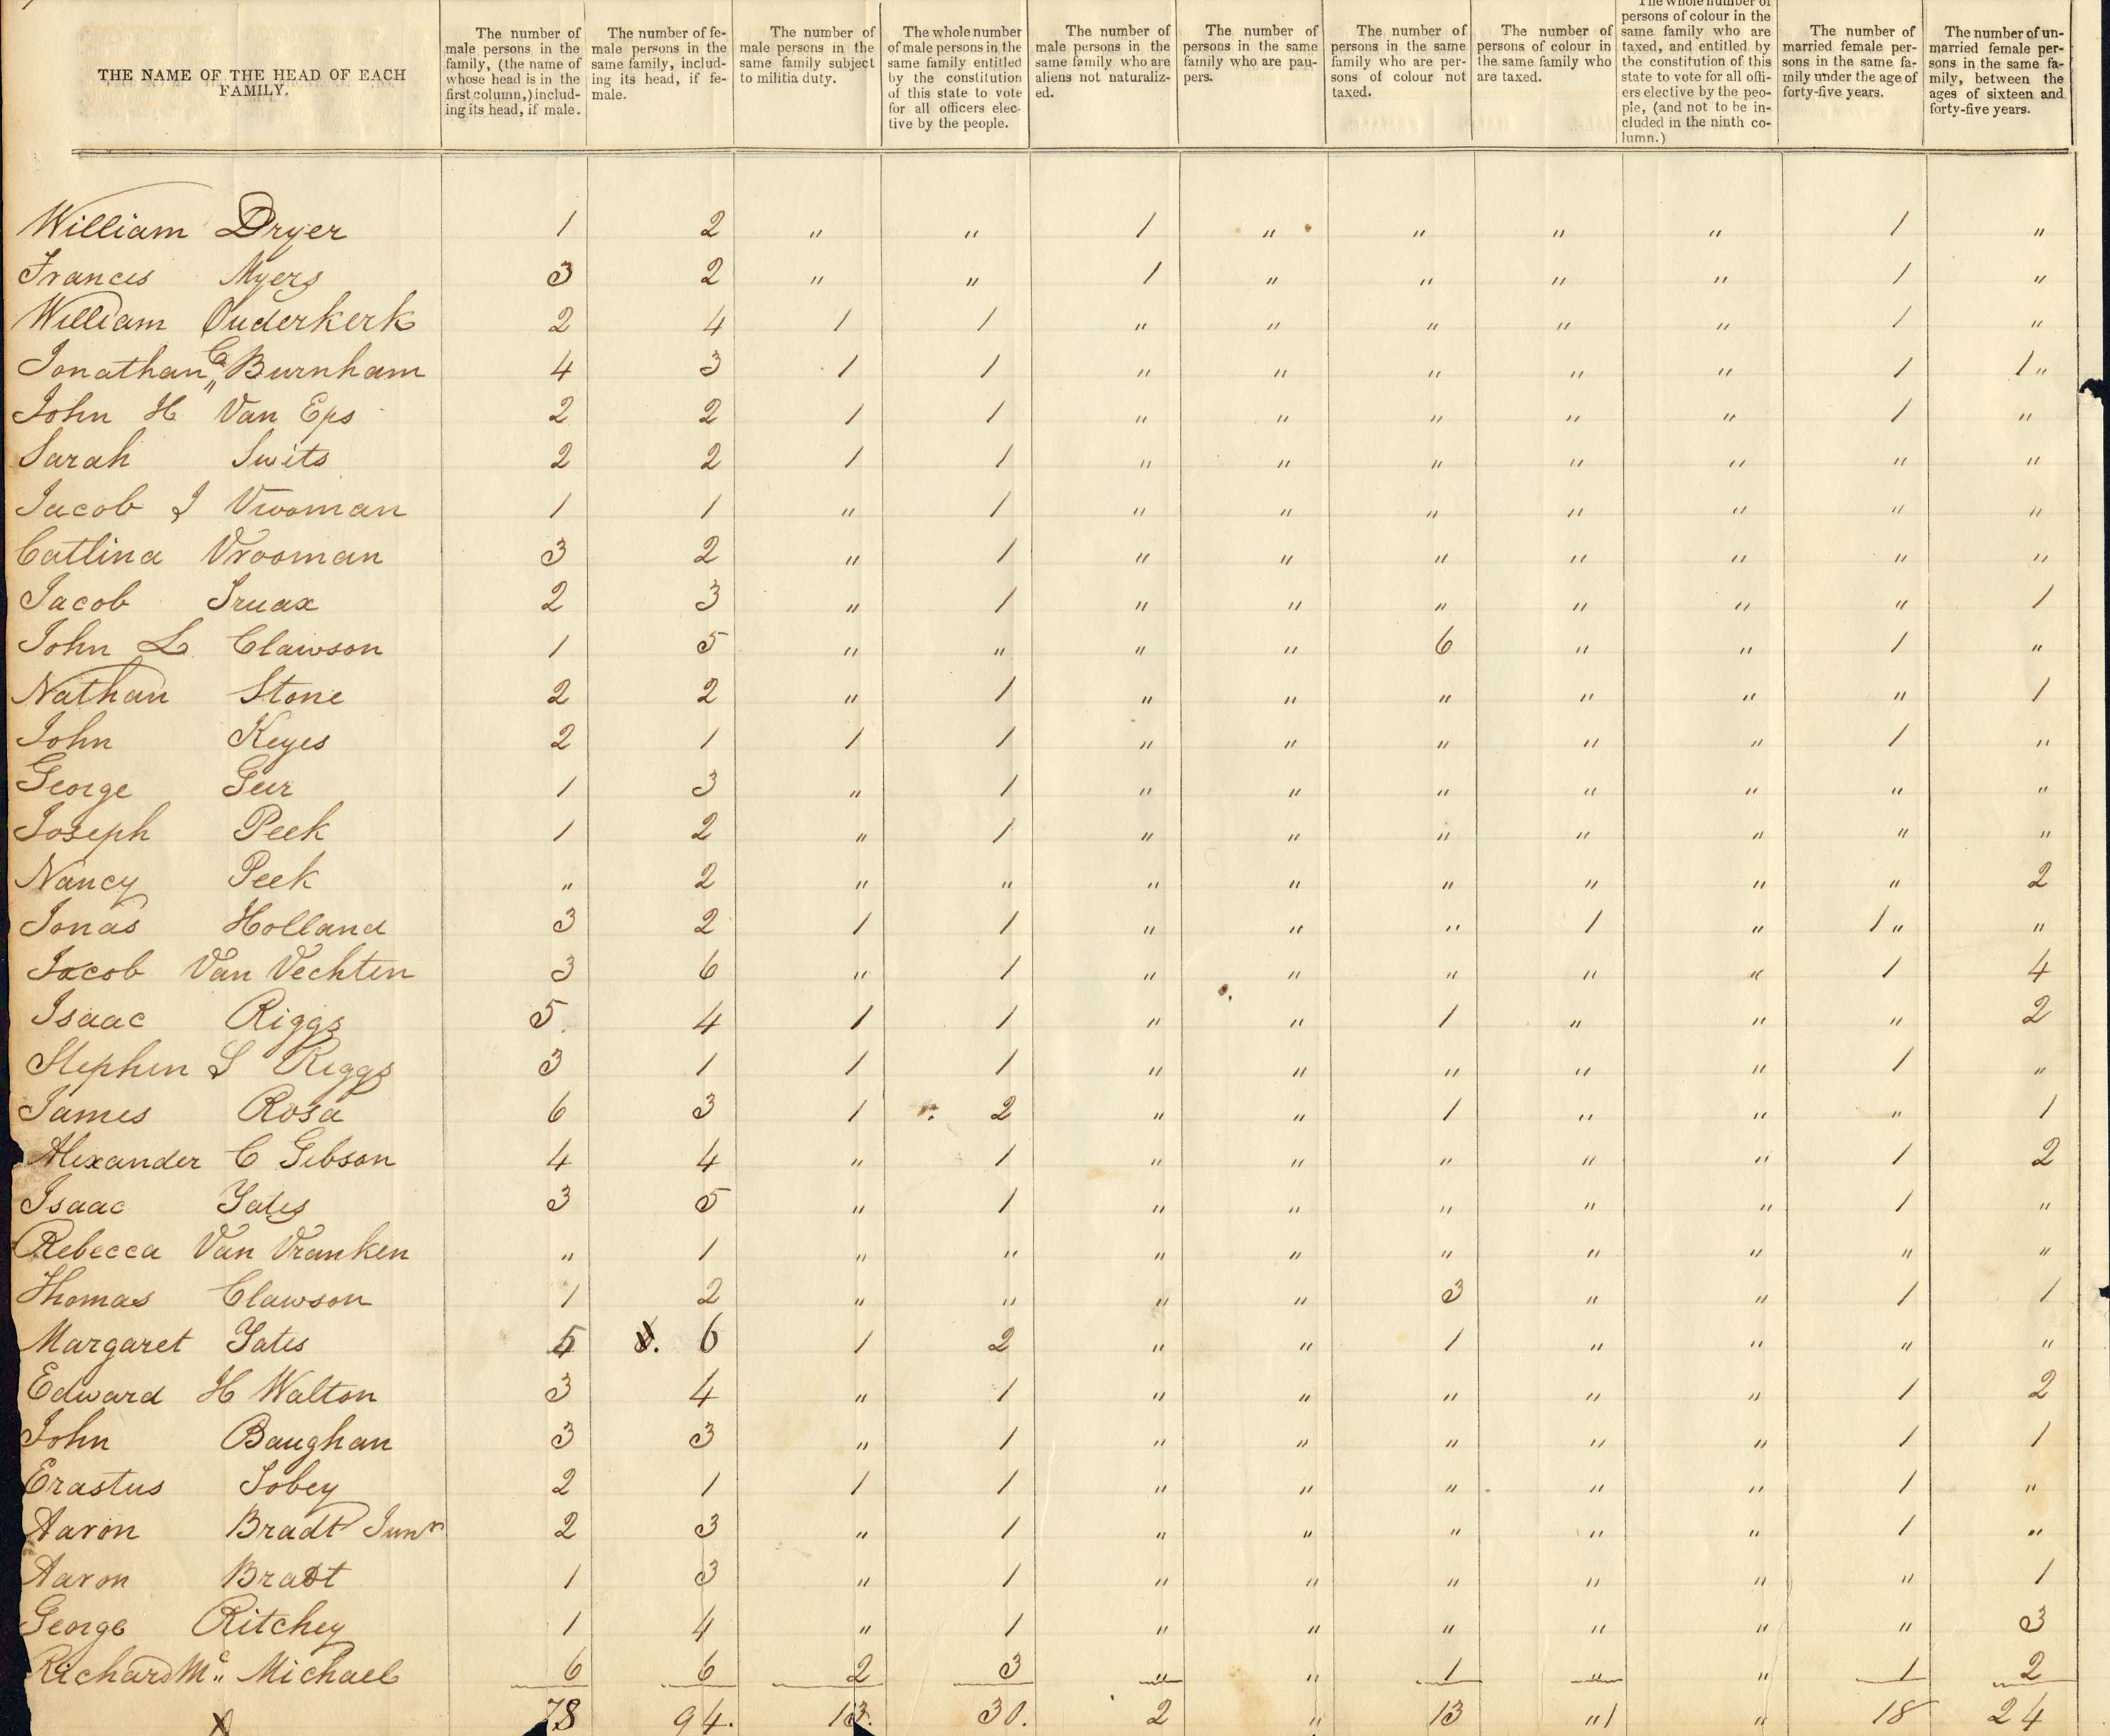 THE NAME OF THE HEAD OF EACH FAMILY.
The number of male persons in the family, (the name of whose head is in the first column,) including its head, if male.
The number of female persons in the same family, including its head, if female.
The number of male persons in the same family subject to militia duty.
The whole number of male persons in the same family entitled by the constitution of this state to vote for all officers elective by the people.
The number of male persons in the same family who are aliens not naturalized.
The number of persons in the same family who are paupers.
The number of persons in the same family who are persons of colour not taxed.
The number of persons of colour in the same family who are taxed.
The whole number of persons of colour in the same family who are taxed, and entitled by the constitution of this state to vote for all officers elective by the people, (and not to be included in the ninth column.)
The number of married female persons in the same family under the age of forty-five years.
The number of unmarried female persons in the same family, between the ages of sixteen and forty-five years.
William Dryer 1 2 " " 1 " " " " 1 "
Francis Myers 3 2 " " 1 " " " " 1 "
William Ouderkerk 2 4 1 1 " " " " " 1 "
Jonathan C Burnham 4 3 1 1 " " " " " 1 1 "
John H Van Eps 2 2 1 1 " " " " " 1 "
Sarah Swits 2 2 1 1 " " " " " " "
Jacob I Vrooman 1 1 " 1 " " " " " " "
Catlina Vrooman 3 2 " 1 " " " " " " "
Jacob Truax 2 3 " 1 " " " " " " 1
John L Clawson 1 5 " " " " 6 " " 1 "
Nathan Stone 2 2 " 1 " " " " " " 1
John Keyes 2 1 1 1 " " " " " 1 "
George Geir 1 3 " 1 " " " " " " "
Joseph Peek 1 2 " 1 " " " " " " "
Nancy Peek " 2 " " " " " " " " 2
Jonas Holland 3 2 1 1 " " " 1 " 1 " "
Jacob Van Vechten 3 6 " 1 " " " " " 1 4
Isaac Riggs 5 4 1 1 " " 1 " " " 2
Stephen S Riggs 3 1 1 1 " " " " " 1 "
James Rosa 6 3 1 2 " " 1 " " " 1
Alexander C Gibson 4 4 " 1 " " " " " 1 2
Isaac Yates 3 5 " 1 " " " " " 1 "
Rebecca Van Vranken " 1 " " " " " " " " "
Thomas Clawson 1 2 " " " " 3 " " 1 1
Margaret Yates 5 6 1 2 " " 1 " " " "
Edward H Walton 3 4 " 1 " " " " " 1 2
John Baughan 3 3 " 1 " " " " " 1 1
Erastus Tobey 2 1 1 1 " " " " " 1 "
Aaron Bradt Junr 2 3 " 1 " " " " " 1 "
Aaron Bradt 1 3 " 1 " " " " " " 1
George Ritchey 1 4 " 1 " " " " " " 3
Richard Mc Michael 6 6 2 3 " " 1 " " 1 2
78 94. 13. 30. 2 " 13 "1 " 18 24